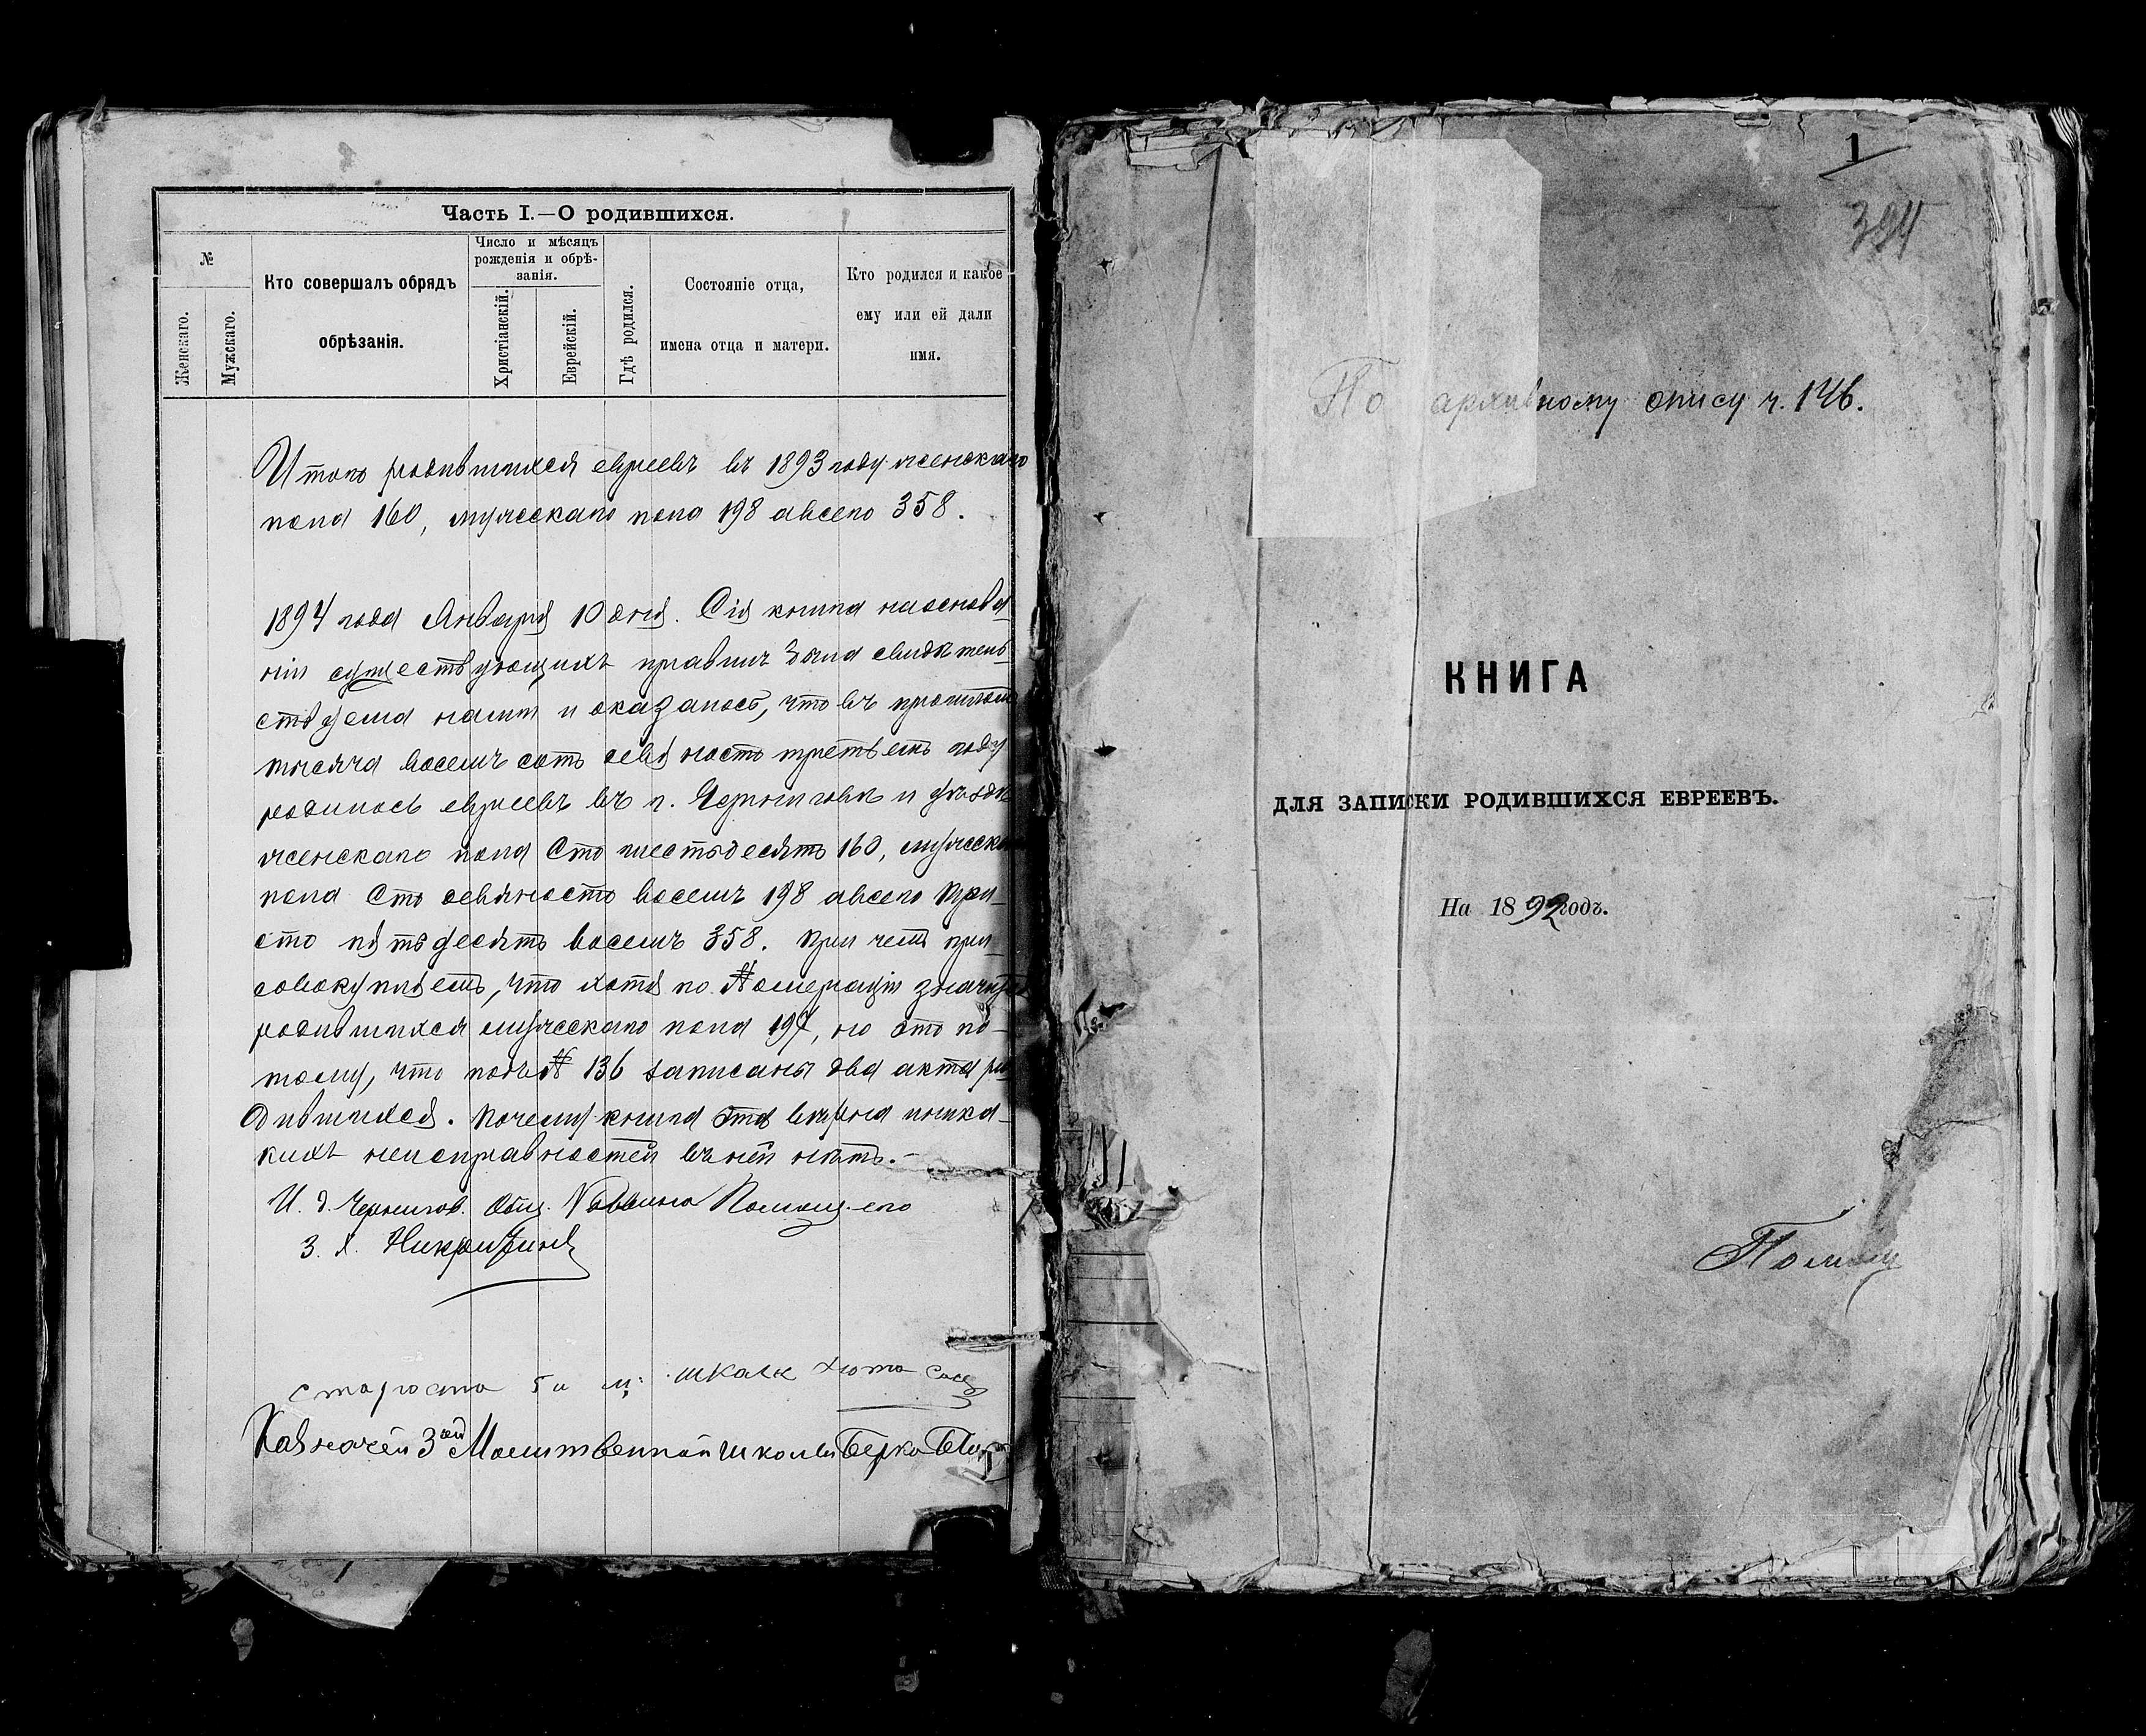 Часть I.—О родившихся.
№
Женскаго.
Мужскаго.
Кто совершалъ обрядъ
обрѣзанія.
Число и мѣсяцъ
рожденія и обрѣ-
занія.
Христіанскій.
Еврейскій.
Гдѣ родился.
Состояніе отца,
имена отца и матери.
Кто родился и какое
ему или ей дали
имя.
Итого родившихся евреевъ въ 1893 году женскаго
пола 160, мужескаго пола 198 а всего 358.
1894 года Января 10 дня. Сія книга на основа-
ніи существующихъ правилъ была свидѣтель-
ствуема нами и оказалось, что въ прошломъ
тысяча восемь сотъ девяносто третьемъ году
родилось евреевъ въ г. Черниговѣ и уѣздѣ
женскаго пола сто шестьдесятъ 160, мужескаго
пола сто девяносто восемь 198 а всего три-
ста пятьдесятъ восемь 358. При чемъ при-
совокупляемъ, что хотя по №омераціи значится
родившихся мужескаго пола 197, но это по-
тому, что подъ № 136 записаны два акта ро-
дившихся. Почему книга эта вѣрна и ника-
кихъ неисправностей въ ней нѣтъ.-
И. д. Чернигов. Общ. Раввина Помощ. его
З. Х.
староста 5й м: школы
Казначей 3ей Молитвенной школы Берко
1
384
По архивному опису ч. 146.
КНИГА
ДЛЯ ЗАПИСКИ РОДИВШИХСЯ ЕВРЕЕВЪ.
На 1892 годъ.
Помощ